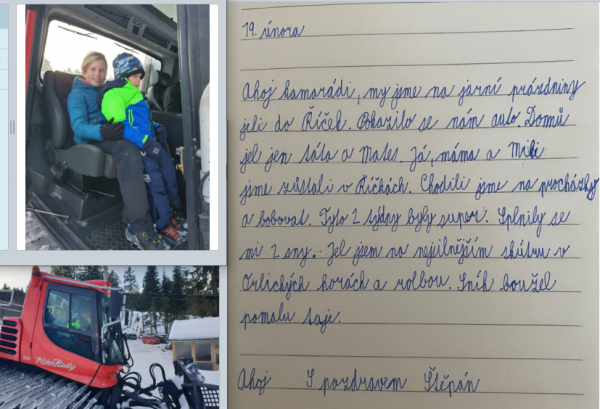 19. února
Ahoj kamarádi, my jsme na jarní prázdniny
jeli do Říček. Pokazilo se nám auto Domů
jel jen táta a Mates. Já, máma a Miki
jsme zůstali v Říčkách. Chodili jsme na procházky
a bobovat. Tyto 2 týdny byly super. Splnily se
mi 2 sny. Jel jsem na nejsilnějším skútru v
Orlických horách a rolbou. Sníh boužel
pomalu taje.
Ahoj S pozdravem Štěpán
PistenBully